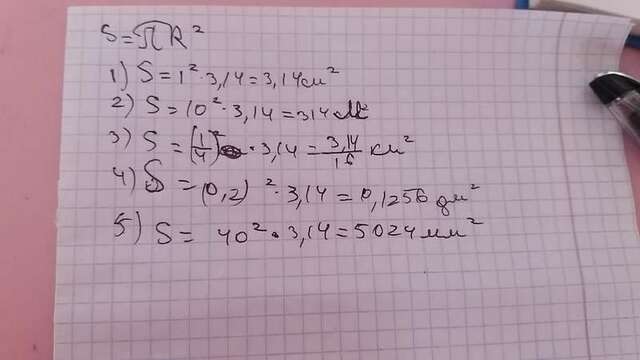 S = πR²
1) S = 1² · 3,14 = 3,14 см²
2) S = 10² · 3,14 = 314 м²
3) S = (1/4)² · 3,14 = 3,14/16 км²
4) S = (0,2)² · 3,14 = 0,1256 дм²
5) S = 40² · 3,14 = 5024 мм²